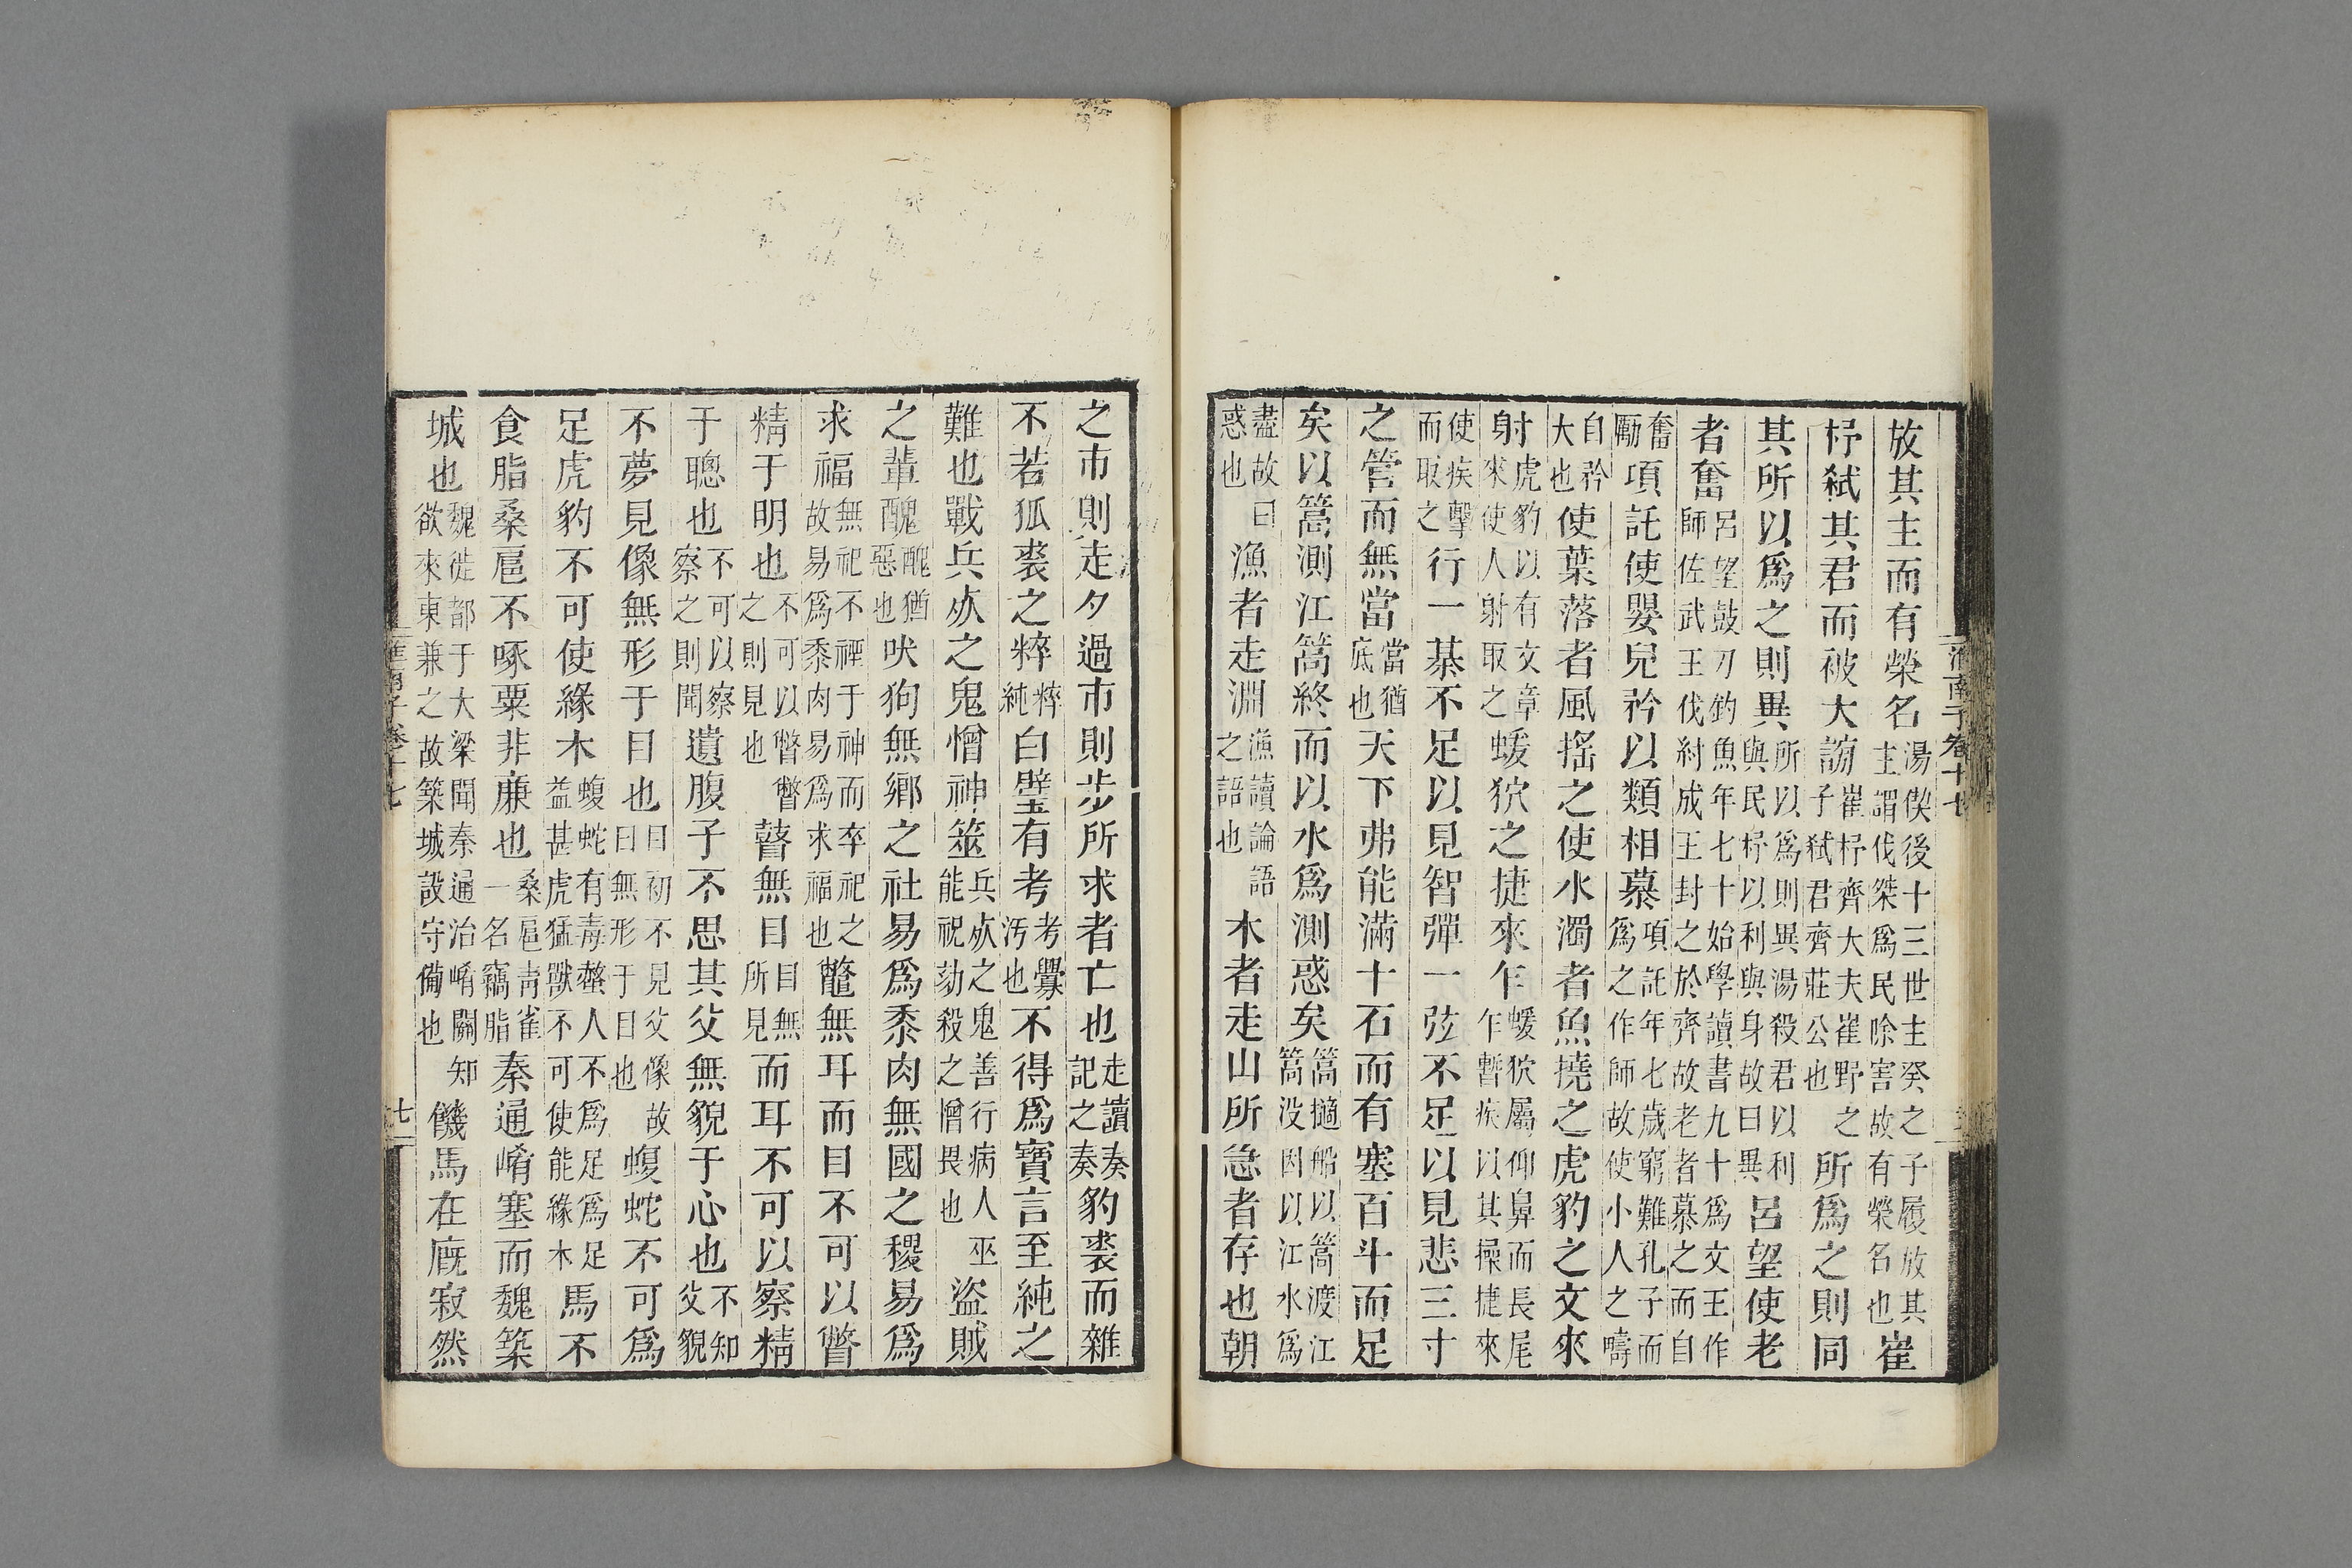 淮南子卷十七
放其主而有榮名湯偰後十三世主癸之子履放其主謂伐桀爲民除害故有榮名也崔
杼弑其君而被大謗崔杼齊大夫崔野之子弑君齊莊公也所爲之則同
其所以爲之則異所以爲則異湯殺君以利與民杼以利與身故曰異呂望使老
者奮呂望鼓刀釣魚年七十始學讀書九十爲文王作師佐武王伐紂成王封之於齊故老者慕之而自
奮勵項託使嬰兒矜以類相慕項託年七歲窮難孔子而爲之作師故使小人之疇
自矜大也使葉落者風搖之使水濁者魚撓之虎豹之文來
射虎豹以有文章來使人射取之蝯狖之捷來乍蝯狖屬仰鼻而長尾乍暫疾以其操捷來
使疾擊而取之行一棊不足以見智彈一弦不足以見悲三寸
之管而無當當猶底也天下弗能滿十石而有塞百斗而足
矣以篙測江篙終而以水爲測惑矣篙擿船以篙渡江篙没因以江水爲
盡故曰惑也漁者走淵漁讀論語之語也木者走山所急者存也朝
之市則走夕過市則步所求者亡也走讀奏記之奏豹裘而雜
不若狐裘之粹粹純白璧有考考釁汚也不得爲寶言至純之
難也戰兵死之鬼憎神筮兵死之鬼善行病人巫能祝劾殺之憎畏也盜賊
之輩醜醜猶惡也吠狗無鄉之社易爲黍肉無國之稷易爲
求福無祀不禋于神而卒祀之故易爲黍肉易爲求福也鼈無耳而目不可以瞥
精于明也不可以瞥瞥之則見也瞽無目目無所見而耳不可以察精
于聰也不可以察察之則聞遺腹子不思其父無貌于心也不知父貌
不夢見像無形于目也目初不見父像故曰無形于目也蝮蛇不可爲
足虎豹不可使緣木蝮蛇有毒螫人不爲足爲足益甚虎猛獸不可使能緣木馬不
食脂桑扈不啄粟非廉也桑扈青雀一名竊脂秦通崤塞而魏築
城也魏徙都于大梁聞秦通治崤關知欲來東兼之故築城設守備也饑馬在廄寂然
淮南子卷十七
七